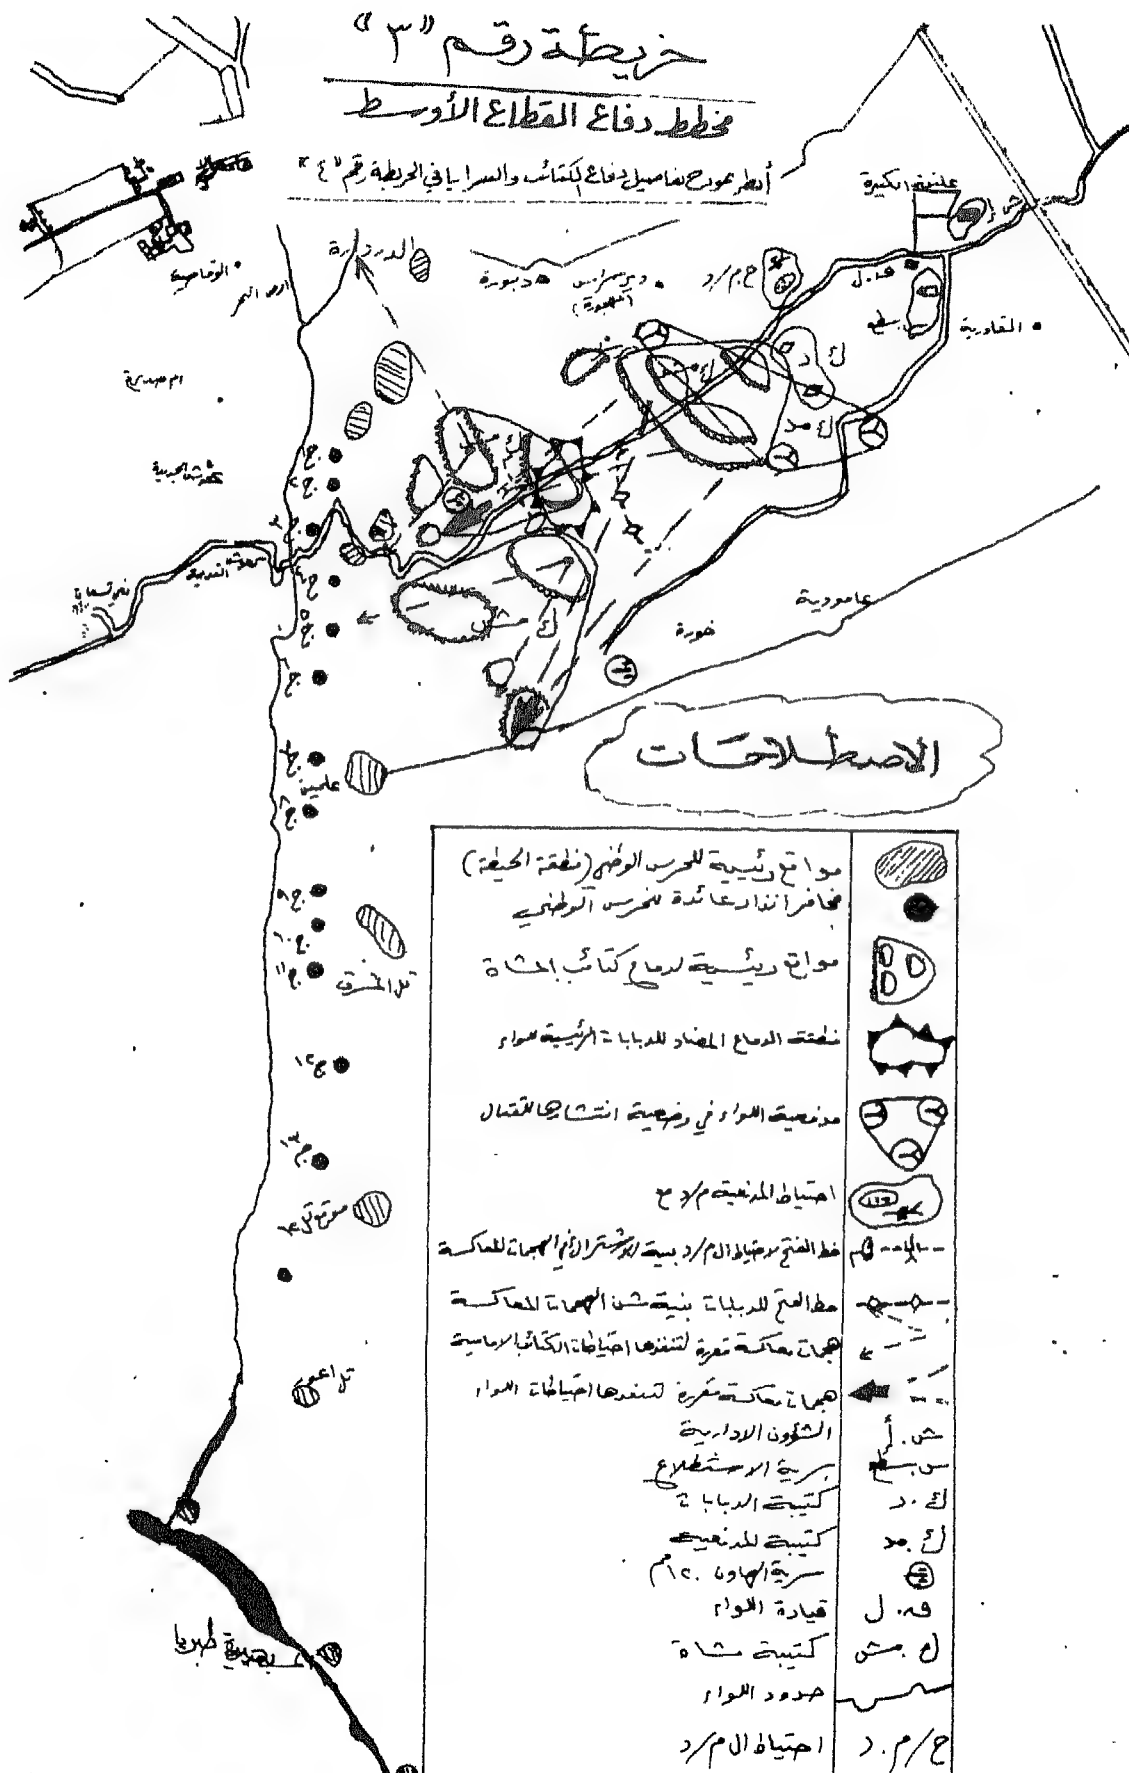 خريطة رقم "٣"
مخطط دفاع القطاع الأوسط
أنظر نموذج تفاصيل دفاع الكتائب والسرايا في الخريطة رقم "٤"
عليقة الكبيرة
ش.أ
الدردارة
دبورة
ح.م/د
ق.ل
سطع
القادرية
ك.د
ك.مد
ج١
ج٢
ج٣
ج٤
ج٥
ج٦
ج٧
علمين
ج٨
ج٩
ج١٠
ج١١
تل المشرق
ج١٢
ج١٣
عامودية
خورة
ك مش
الاصطلاحات
مواقع رئيسية للحرس الوطني (منطقة الحيطة)
مخافر انذار عائدة للحرس الوطني
مواقع رئيسية لدفاع كتائب المشاة
منطقة الدفاع المضاد للدبابات الرئيسية للواء
مدفعية اللواء في وضعية انتشارها للقتال
احتياط المدفعية م/د مع
خط الفتح لاحتياط ال م/د بنية الاشتراك في الهجمات المعاكسة
خط الفتح للدبابات بنية شن الهجمات المعاكسة
هجمات معاكسة مقررة لتنفذها احتياطات الكتائب الامامية
هجمات معاكسة مقررة لتنفذها احتياطات اللواء
الشؤون الادارية ش.أ
سرية الاستطلاع س.سطع
كتيبة الدبابات ك.د
كتيبة المدفعية ك.مد
سرية الهاون ١٢٠مم
قيادة اللواء ق.ل
كتيبة مشاة ك.مش
حدود اللواء
احتياط ال م/د ح/م.د
تل اعور
بحيرة طبريا